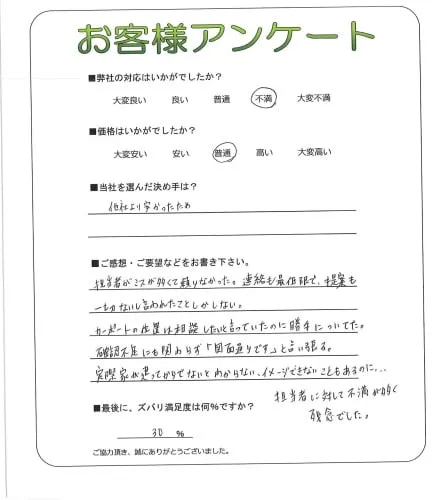 お客様アンケート
■弊社の対応はいかがでしたか？
大変良い 良い 普通 不満 大変不満
■価格はいかがでしたか？
大変安い 安い 普通 高い 大変高い
■当社を選んだ決め手は？
他社より安かったため
■ご感想・ご要望などをお書き下さい。
担当者がミスが多くて頼りなかった。連絡も最低限で、提案も
一切ないし言われたことしかしない。
カーポートの位置は相談したいと言っていたのに勝手についてた。
確認不足にも関わらず「図面通りです」と言い張る。
実際家が建ってからでないとわからない、イメージできないこともあるのに...
担当者に対して不満が多く
残念でした。
■最後に、ズバリ満足度は何％ですか？
30 ％
ご協力頂き、誠にありがとうございました。